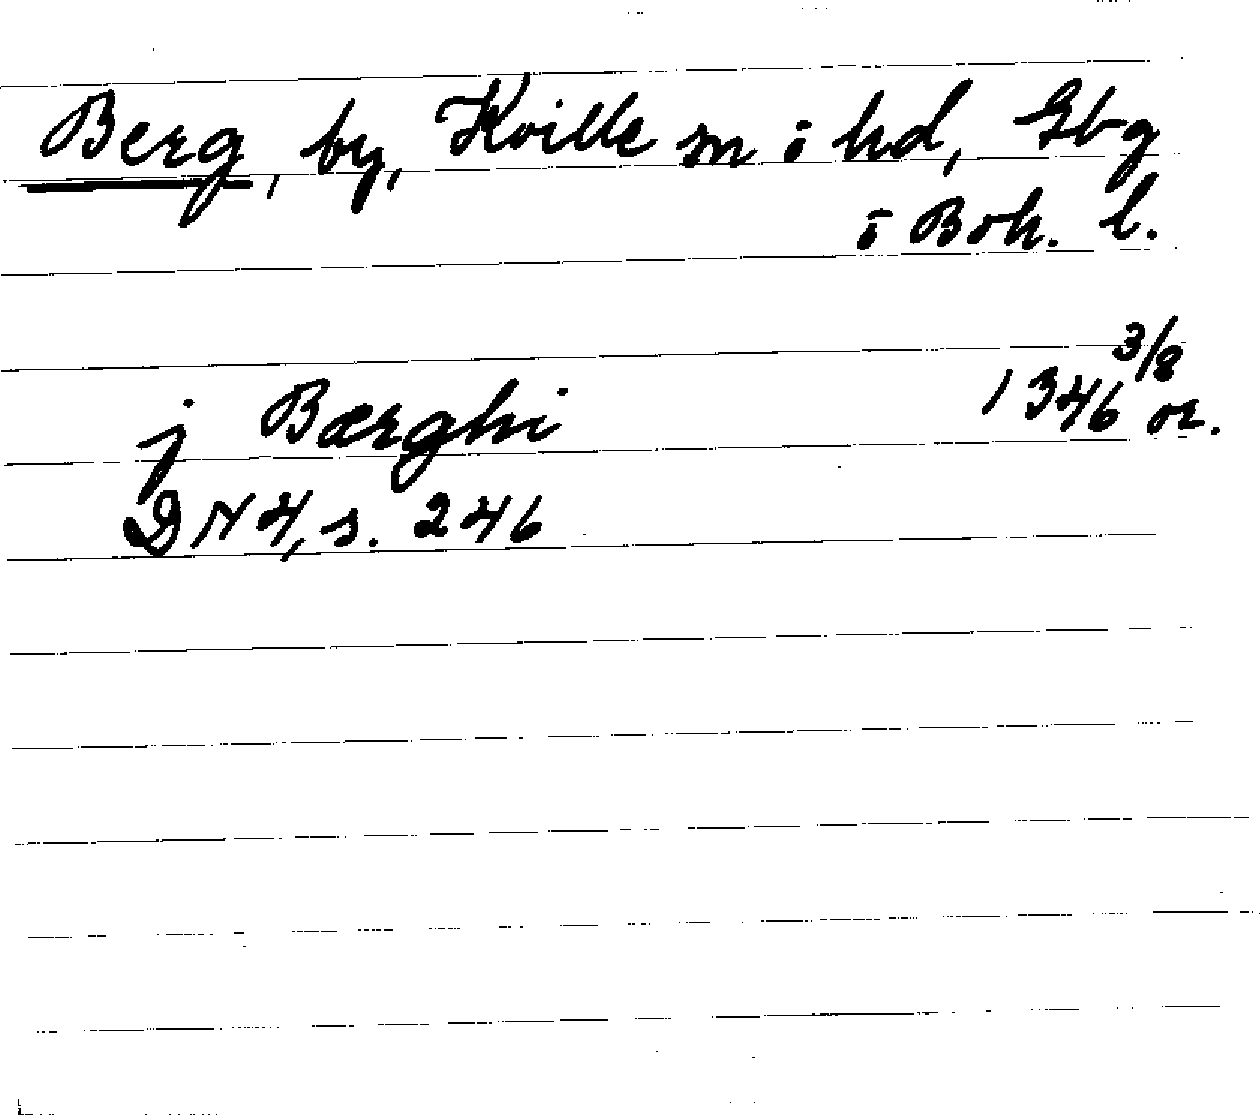 Berg, by, Kville sn o hd, Gbg
o Boh. l.
j Bærghi 1346 3/8 or.
DN 4, s. 246